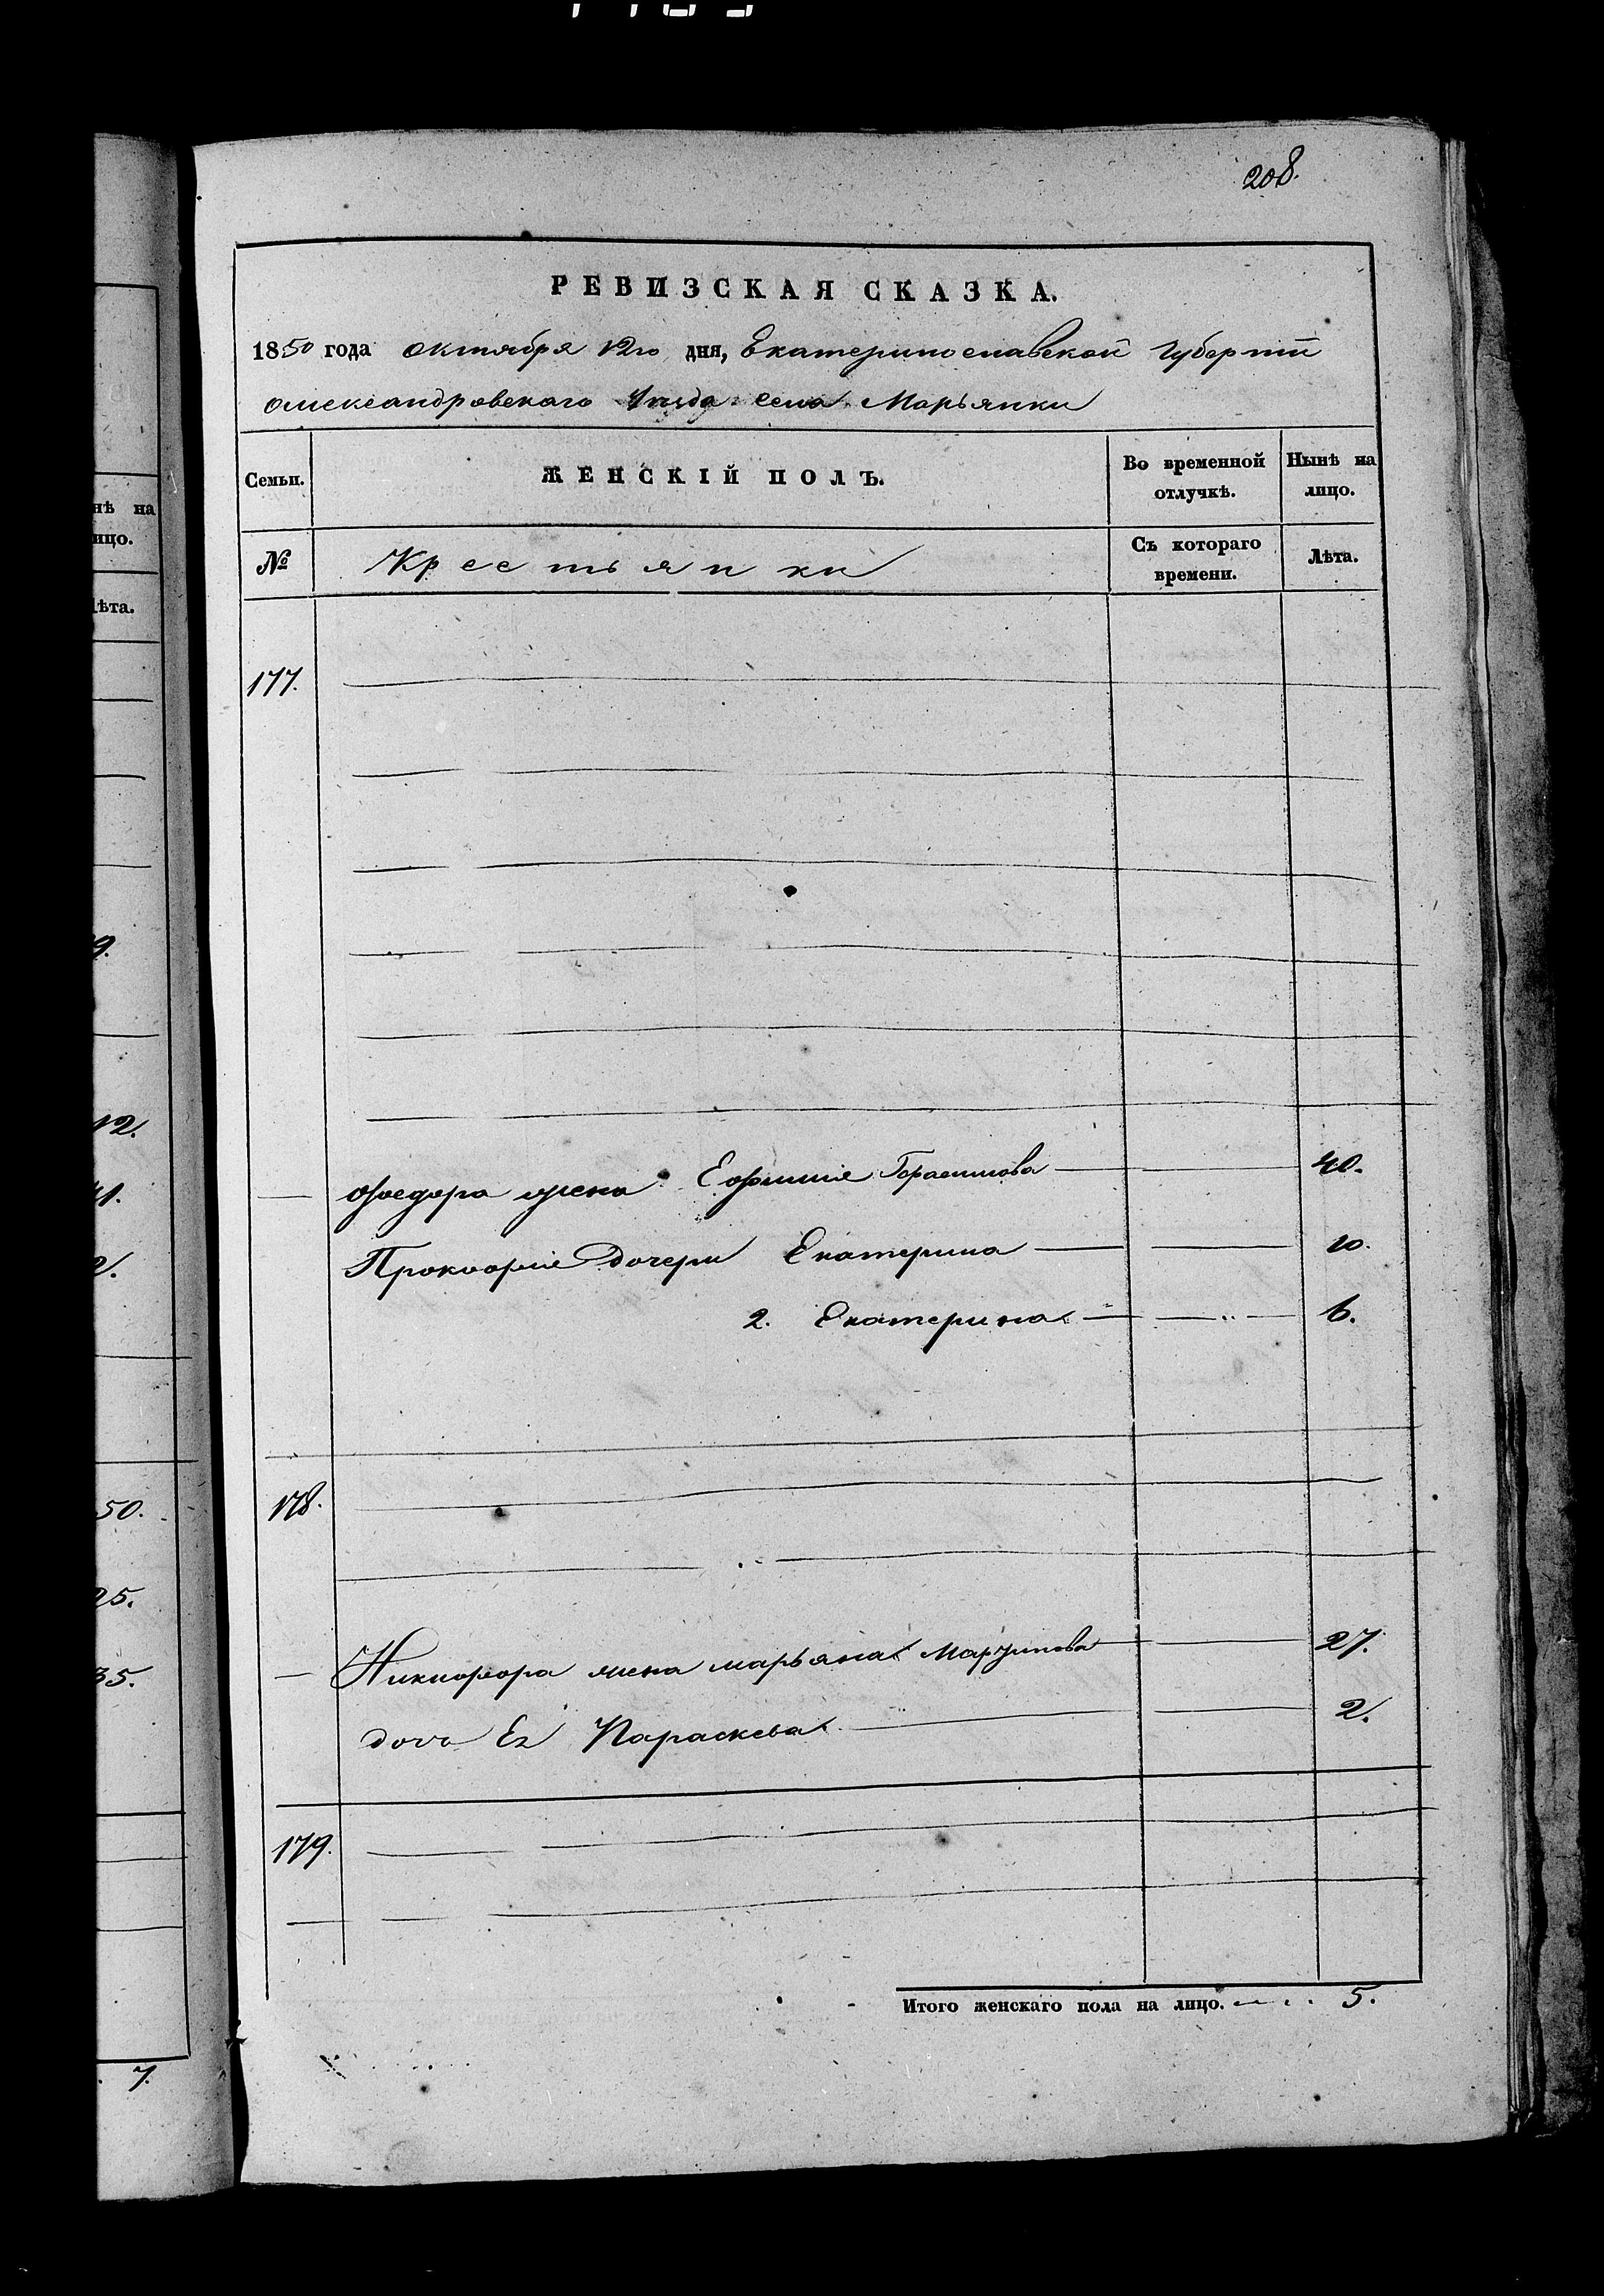 208.
РЕВИЗСКАЯ СКАЗКА.
1850 года октября 12го дня, Екатеринославской Губернiи
Александровскаго Уѣзда села Марьянки
Семьи. ЖЕНСКІЙ ПОЛЪ. Во временной отлучкѣ. Нынѣ на лицо.
№ Крестьянки Съ котораго времени. Лѣта.
177.
Фѳедора жена Ефимiя Герасимова 40.
Прокофiя дочери Екатерина 10.
2. Екатерина 6.
178.
Никифора жена марьяна 27.
дочь Ея Параскева 2.
179.
Итого женскаго пола на лицо. 5.
нѣ на
ицо.
лѣта.
9.
12.
41.
2.
50.
25.
35.
7.